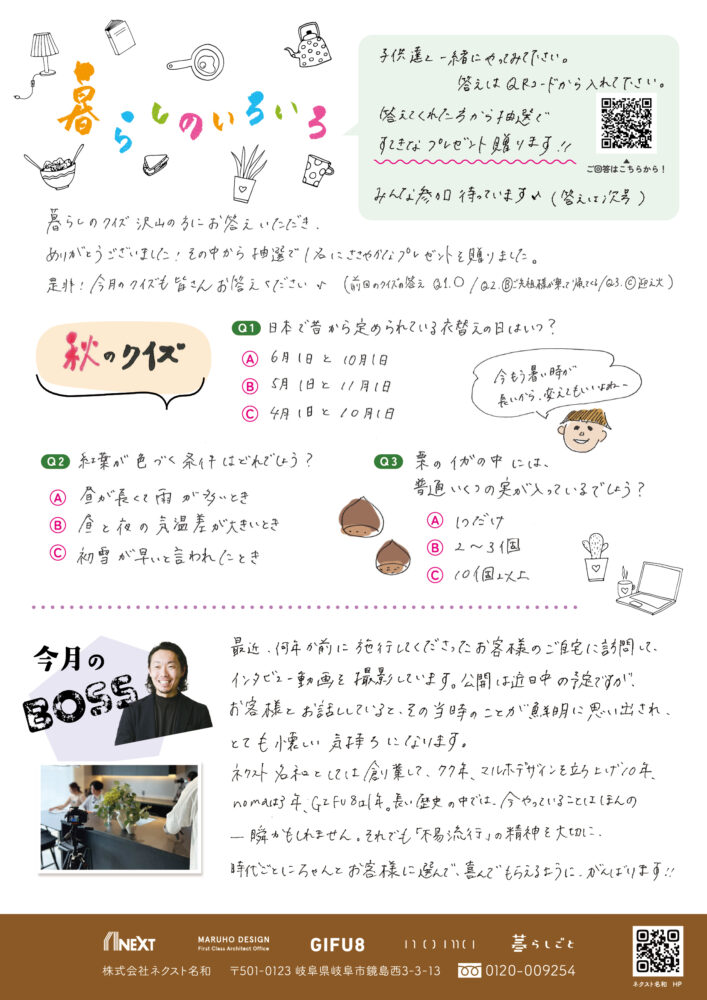 暮らしのいろいろ
子供達と一緒にやってみて下さい。
答えはQRコードから入れて下さい。
答えてくれた方から抽選で
すてきなプレゼント贈ります!!
ご回答はこちらから!
みんな参加待っています♪(答えは次号)
暮らしのクイズ沢山の方にお答えいただき、
ありがとうございました!その中から抽選で1名にささやかなプレゼントを贈りました。
是非!今月のクイズも皆さんお答えください♪(前回のクイズの答え Q1.○/Q2.Ⓑご先祖様が乗って帰ってくる/Q3.Ⓒ迎え火)
秋のクイズ
Q1 日本で昔から定められている衣替えの日はいつ?
A 6月1日と10月1日
B 5月1日と11月1日
C 4月1日と10月1日
今もう暑い時が
長いから、変えてもいいよねー
Q2 紅葉が色づく条件はどれでしょう?
A 昼が長くて雨が多いとき
B 昼と夜の気温差が大きいとき
C 初雪が早いと言われたとき
Q3 栗のイガの中には、
普通いくつの実が入っているでしょう?
A 1つだけ
B 2〜3個
C 10個以上
今月の
BOSS
最近、何年か前に施行してくださったお客様のご自宅に訪問して、
インタビュー動画を撮影しています。公開は近日中の予定ですが、
お客様とお話ししていると、その当時のことが鮮明に思い出され、
とても懐しい気持ちになります。
ネクスト名和としては創業して、77年、マルホデザインを立ち上げ10年、
nomaは3年、GIFU8は1年。長い歴史の中では、今やっていることはほんの
一瞬かもしれません。それでも「不易流行」の精神を大切に、
時代ごとにちゃんとお客様に選んで、喜んでもらえるように、がんばります!!
NEXT
MARUHO DESIGN
First Class Architect Office
GIFU8
nomo
暮らしごと
株式会社ネクスト名和 〒501-0123 岐阜県岐阜市鏡島西3-3-13 0120-009254
ネクスト名和 HP